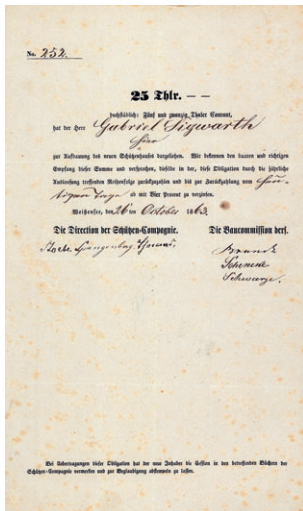 No. 252.
25 Thlr. — —
buchstäblich: Fünf und zwanzig Thaler Courant,
hat der Herr Gabriel Sigwarth
hier
zur Aufbauung des neuen Schützenhauses dargeliehen. Wir bekennen den baaren und richtigen
Empfang dieser Summe und versprechen, dieselbe in der, diese Obligation durch die jährliche
Ausloosung treffenden Reihenfolge zurückzuzahlen und bis zur Zurückzahlung vom
Tage ab mit Vier Procent zu verzinsen.
Weißensee, den 26ten October 1863.
Die Direction der Schützen-Compagnie. Die Baucommission ders.
Schwarze.
Bei Uebertragungen dieser Obligation hat der neue Inhaber die Cession in den betreffenden Büchern der
Schützen-Compagnie vermerken und zur Beglaubigung abstempeln zu lassen.